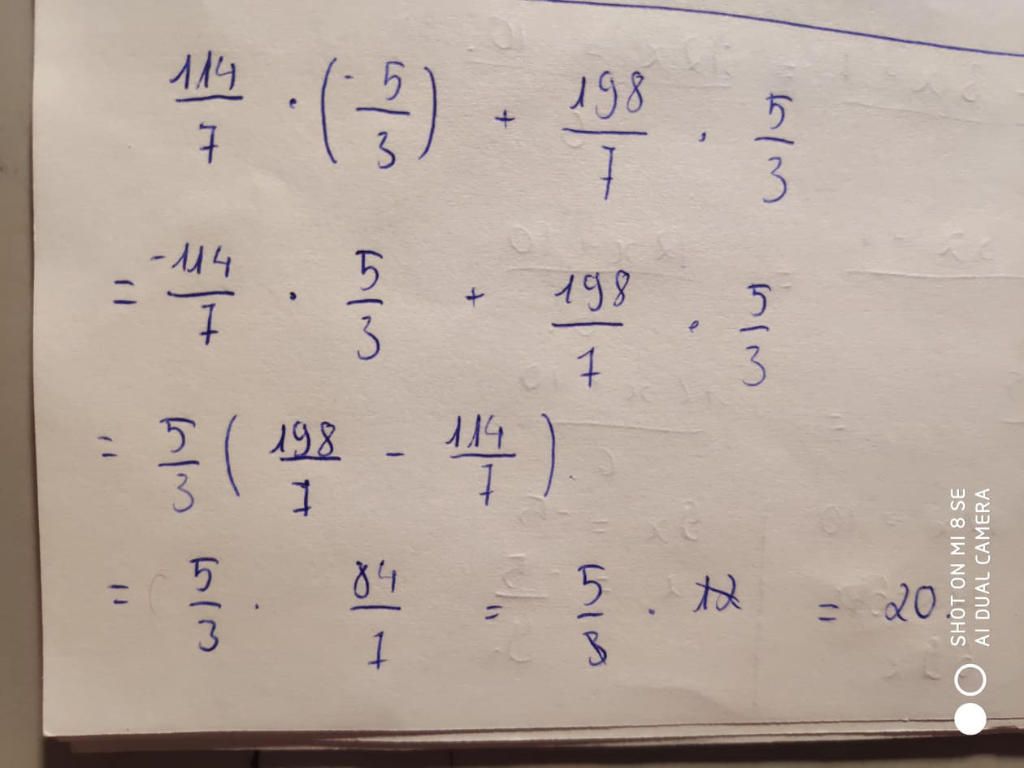 114/7 · (-5/3) + 198/7 · 5/3
= -114/7 · 5/3 + 198/7 · 5/3
= 5/3 ( 198/7 - 114/7 ).
= 5/3 · 84/7 = 5/3 · 12 = 20.
SHOT ON MI 8 SE
AI DUAL CAMERA